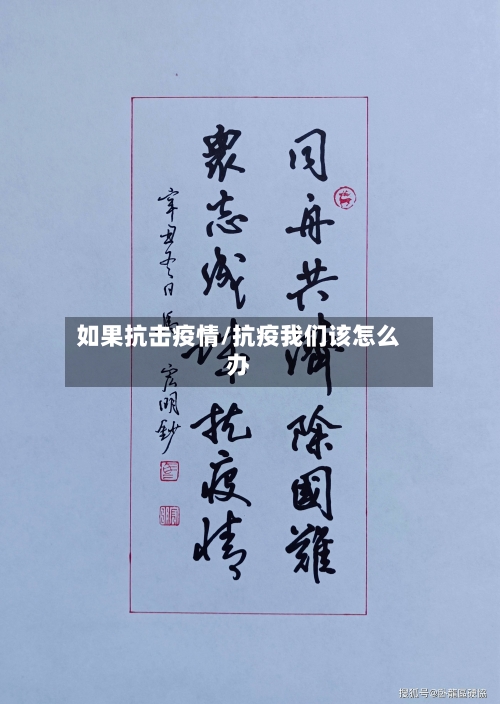 同舟共濟除國難
衆志成城抗疫情
辛丑冬日
宏明鈔
如果抗击疫情/抗疫我们该怎么
办
搜狐号@